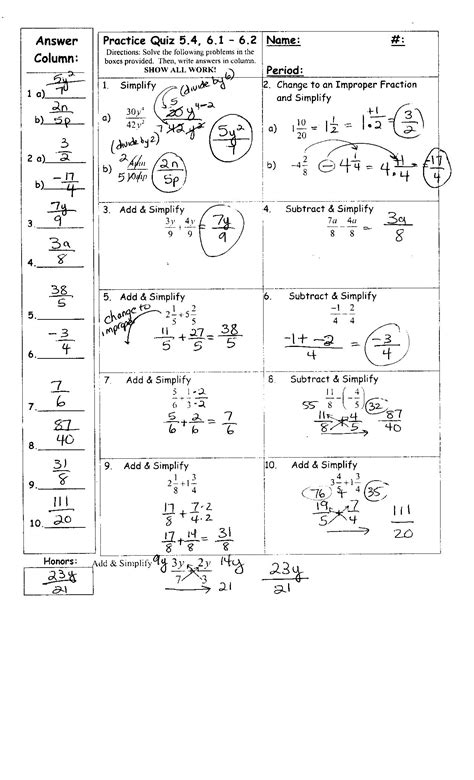 Answer Column:
1 a) 5y²/7
b) 2n/5p
2 a) 3/2
b) -17/4
3. 7y/9
4. 3a/8
5. 38/5
6. -3/4
7. 7/6
8. 87/40
9. 31/8
10. 111/20
Honors:
23y/21
Practice Quiz 5.4, 6.1 – 6.2
Directions: Solve the following problems in the
boxes provided. Then, write answers in column.
SHOW ALL WORK!
Name: #:
Period:
1. Simplify (divide by 6)
a) 30y⁴/42y² 5 y⁴⁻² / 7 42y² 5y²/7
(divide by 2)
b) 2 5 2n/5p
2. Change to an Improper Fraction
and Simplify
a) 1 10/20 = 1 1/2 = 1 +1/·2 = 3/2
b) -4 2/8 - 4 1/4 = 4 +1/·4 = -17/4
3. Add & Simplify
3y/9 + 4y/9 = 7y/9
4. Subtract & Simplify
7a/8 - 4a/8 = 3a/8
5. Add & Simplify
change to improper
2 1/5 + 5 2/5
11/5 + 27/5 = 38/5
6. Subtract & Simplify
-1/4 - 2/4
-1 + -2/4 = -3/4
7. Add & Simplify
5/6 + 1·2/3·2
5/6 + 2/6 = 7/6
8. Subtract & Simplify
11/8 - (-4/5)
55 32
11/8 + 4/5 87/40
9. Add & Simplify
2 1/8 + 1 3/4
17/8 + 7·2/4·2
17/8 + 14/8 = 31/8
10. Add & Simplify
3 4/5 + 1 3/4
76 35
19/5 + 7/4 111/20
Add & Simplify 9y 3y/7 + 2y/3 14y 23y/21
21